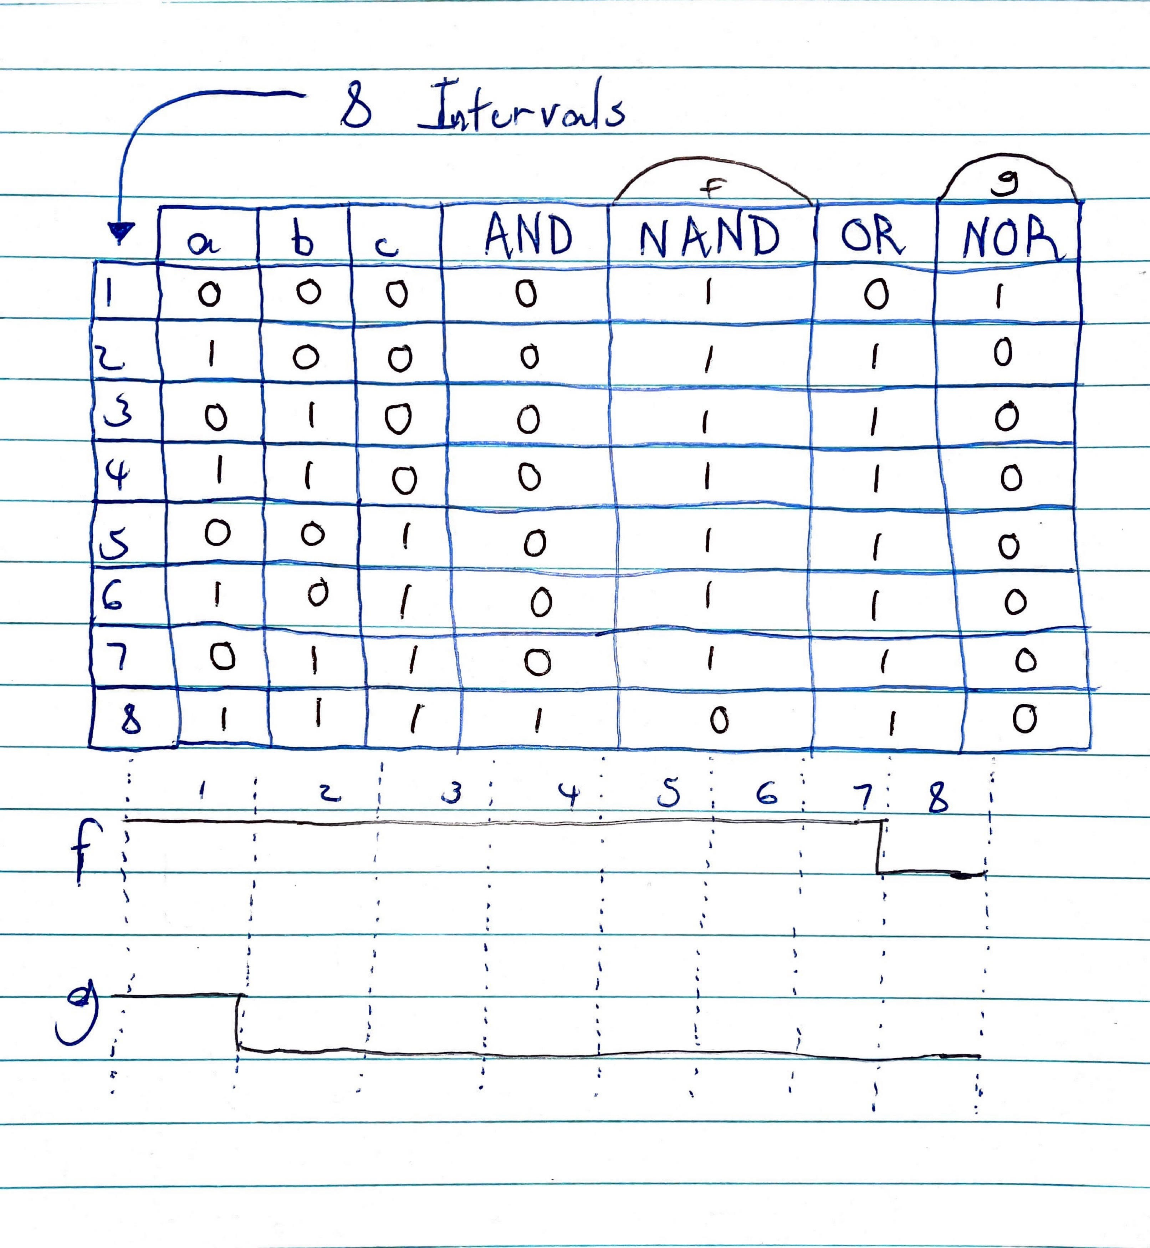 8 Intervals
F g
a b c AND NAND OR NOR
1 0 0 0 0 1 0 1
2 1 0 0 0 1 1 0
3 0 1 0 0 1 1 0
4 1 1 0 0 1 1 0
5 0 0 1 0 1 1 0
6 1 0 1 0 1 1 0
7 0 1 1 0 1 1 0
8 1 1 1 1 0 1 0
1 2 3 4 5 6 7 8
f
g